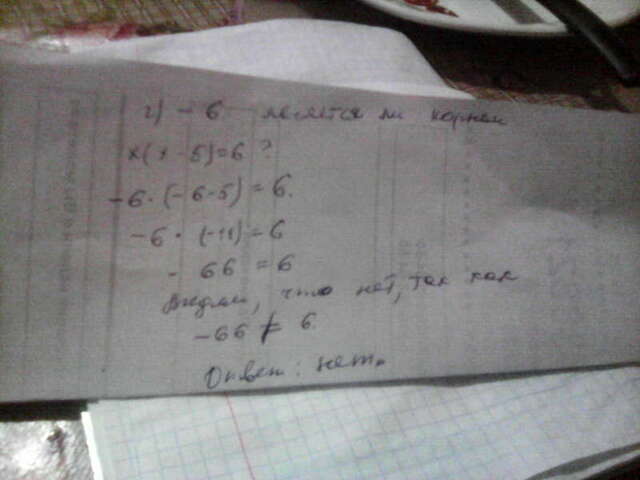 г) - 6 является ли корнем
x(x - 5) = 6 ?
-6 · (-6-5) = 6.
-6 · (-11) = 6
- 66 = 6
Видим, что нет, так как
-66 ≠ 6.
Ответ: нет.